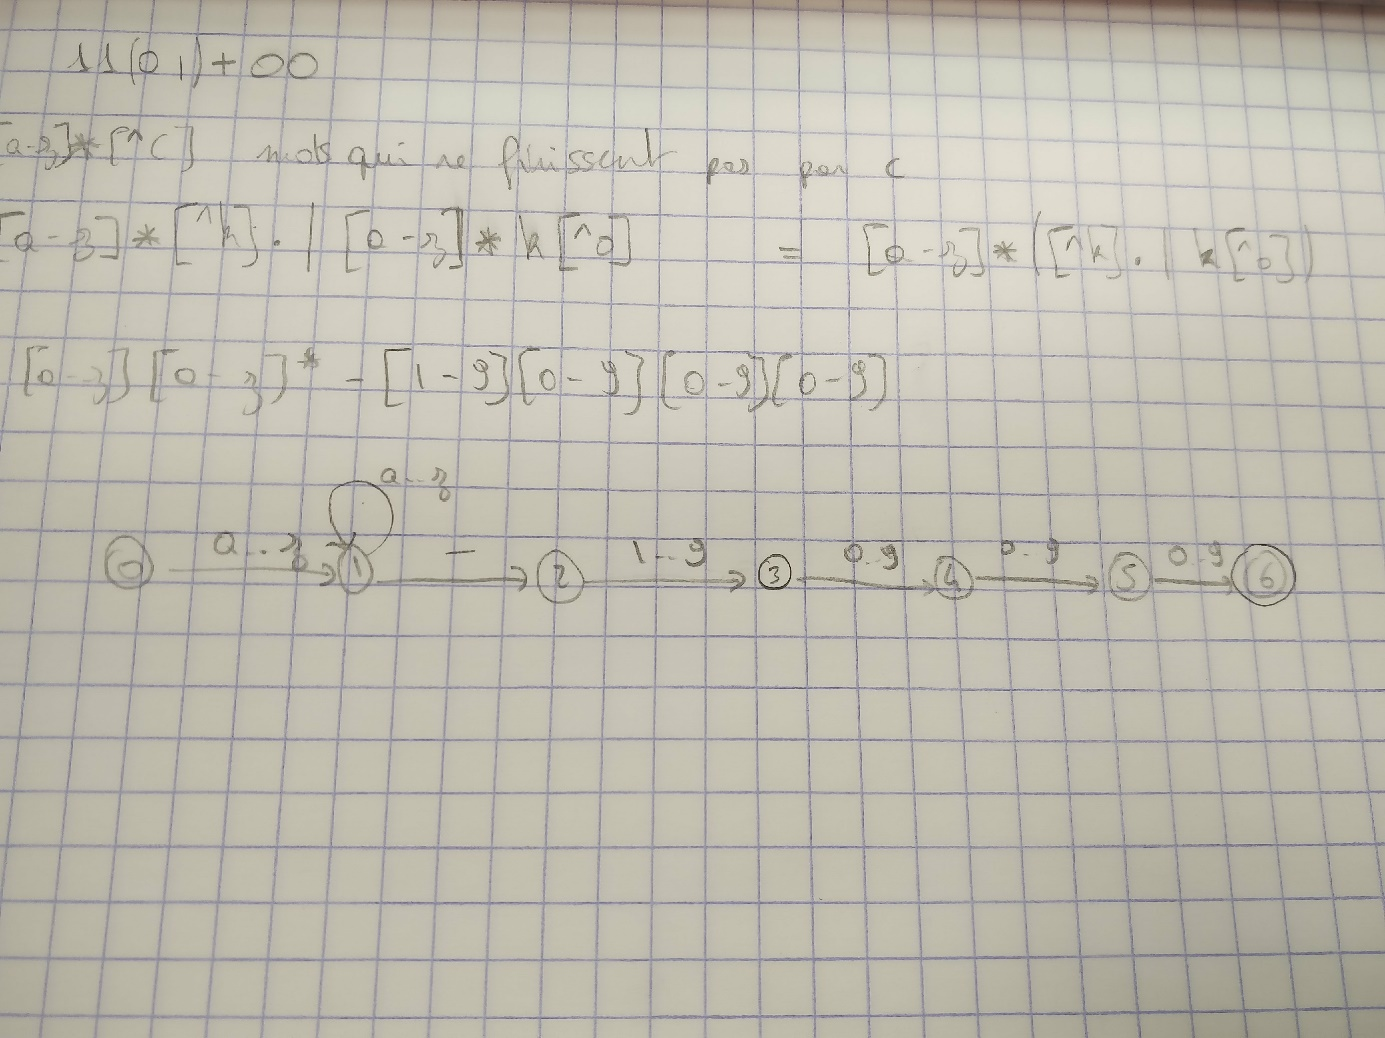 11(0,1)+00
[a-z]*[^c] mots qui ne finissent pas par c
[a-z]*[^k].|[a-z]*k[^o] = [a-z]*([^k].|k[^o])
[a-z][a-z]*-[1-9][0-9][0-9][0-9]
a..z
a..z - 1..9 0..9 0..9 0..9
0 1 2 3 4 5 6